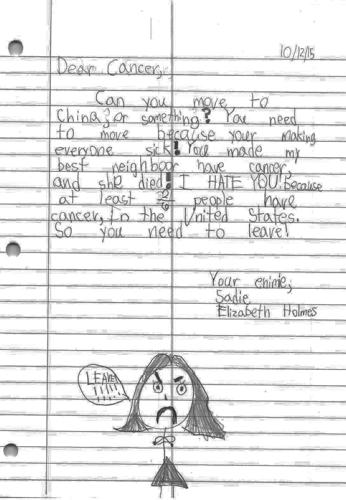 10/12/15
Dear Cancer,
Can you move to
China, or something? You need
to move because your making
everyone sick! You'e made my
best neighboor have cancer,
and she died! I HATE YOU! because
at least 2/6 people have
cancer, In the United States.
So you need to leave!
Your enimie,
Sadie
Elizabeth Holmes
LEAVE
!!!!!